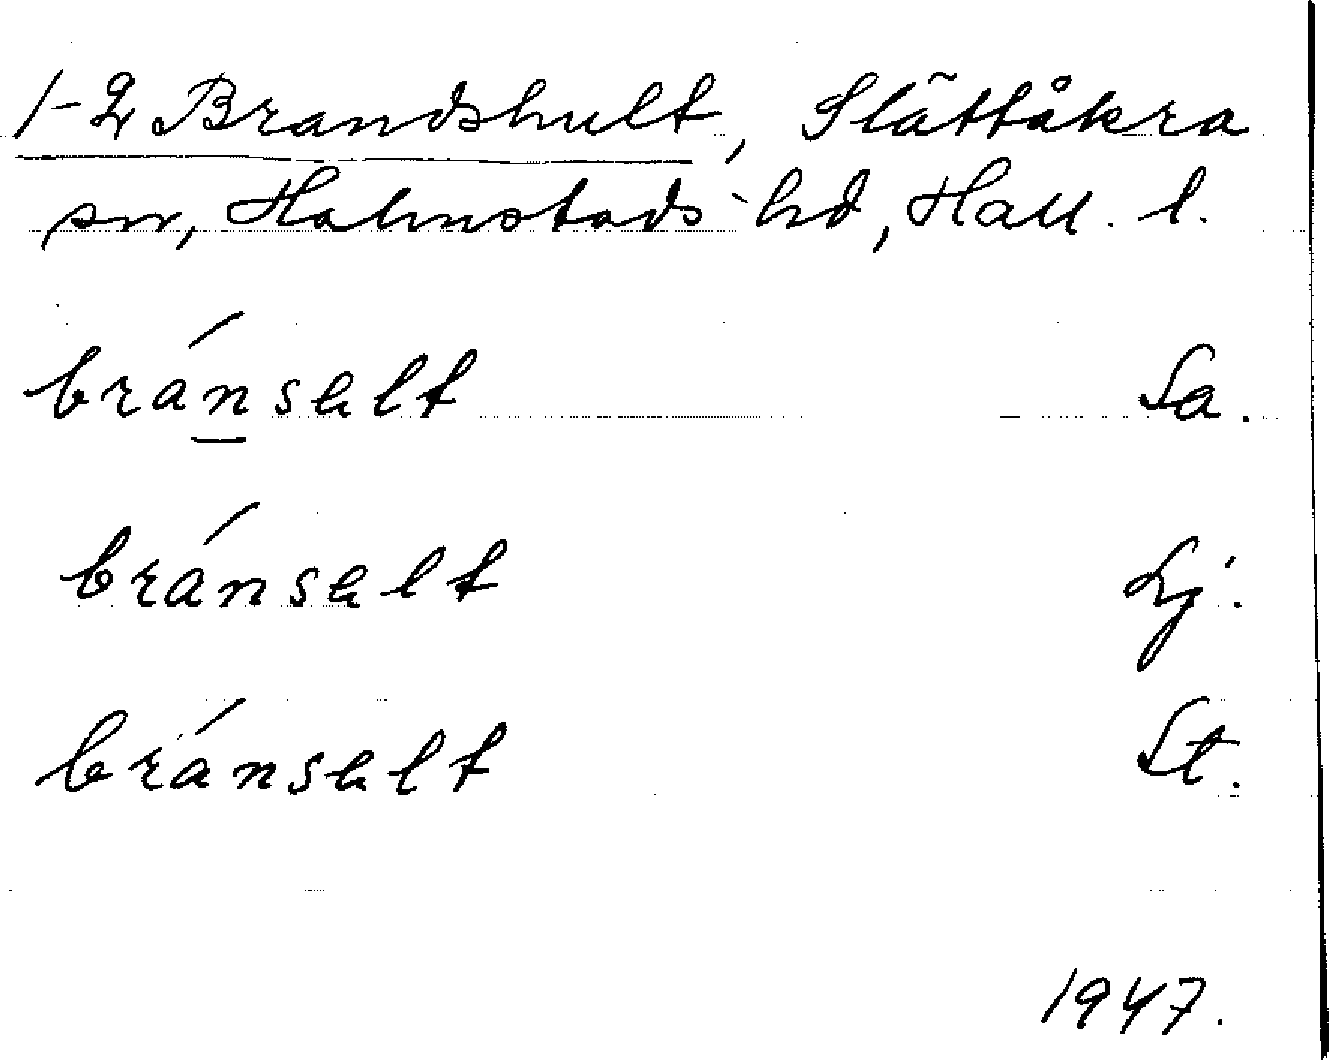 1-2 Brandshult, Slättåkra
sn, Halmstads hd, Hall. l.
bránsalt Sa.
bránsalt Lj.
bránsalt St.
1947.